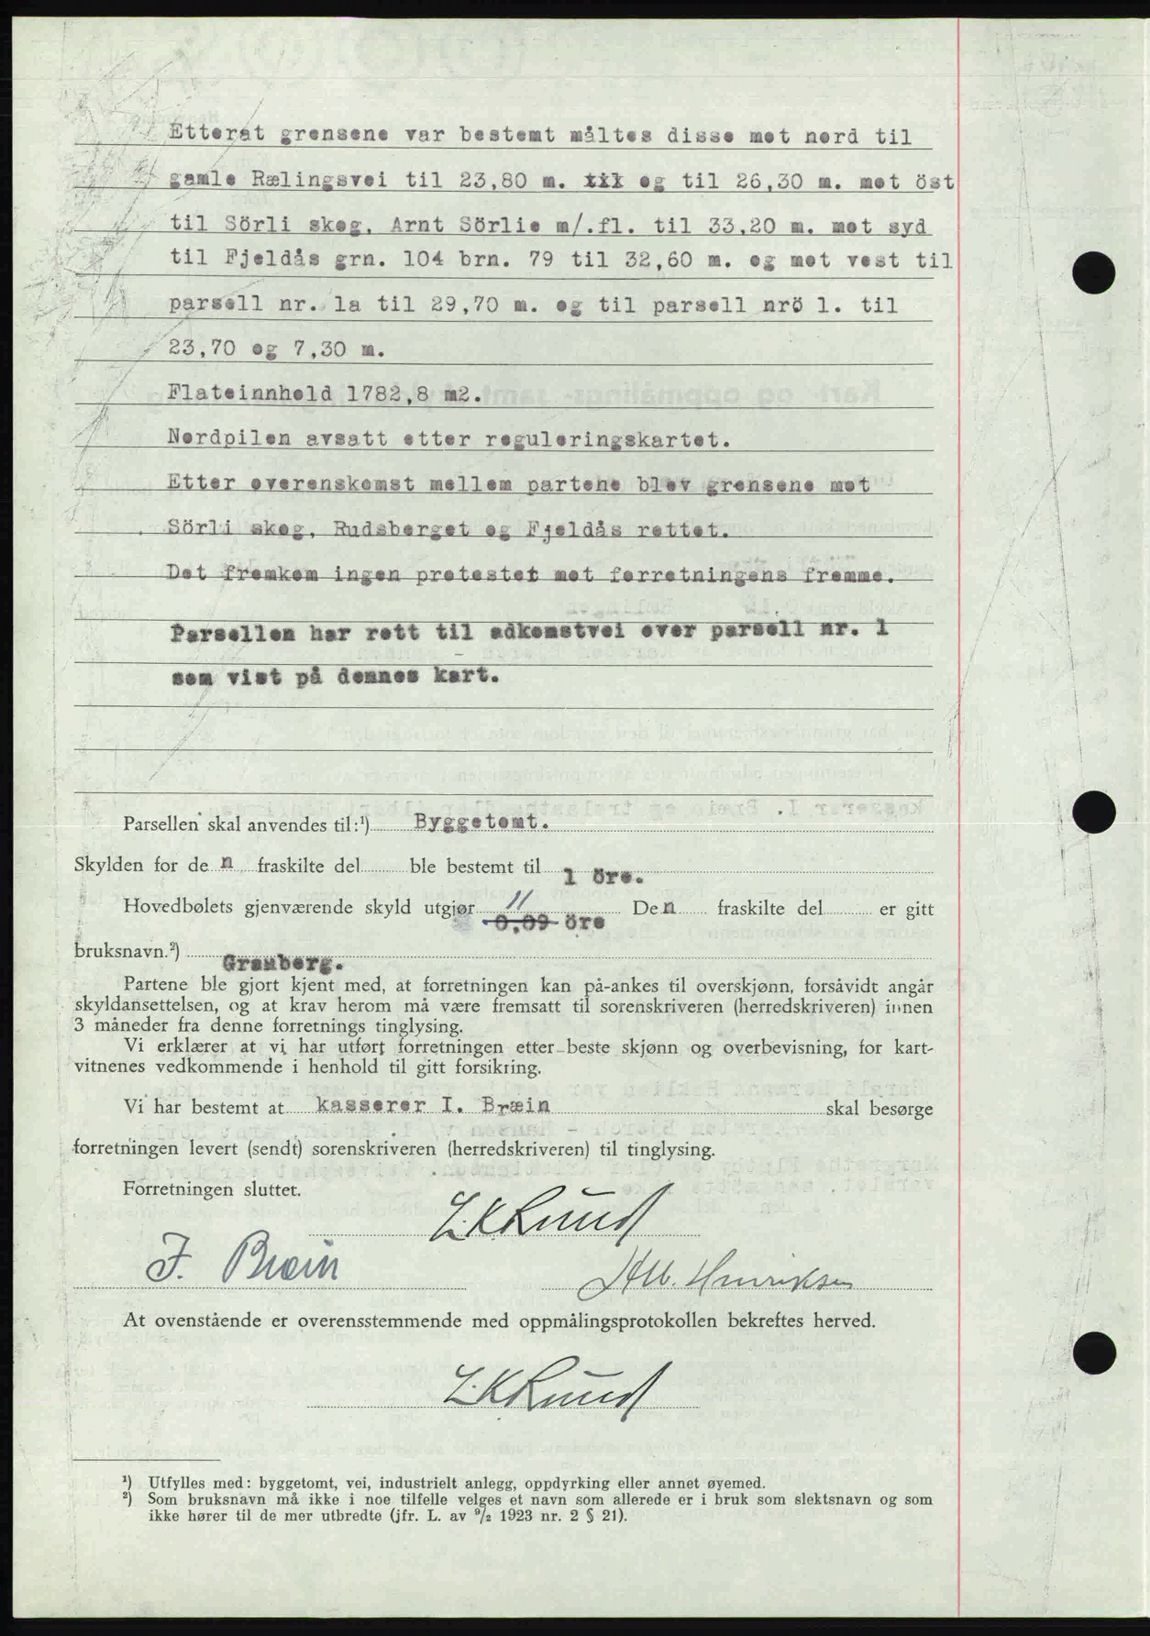 Etterat grensene var bestemt måltes disse mot nord til
gamle Rælingsvei til 23,80 m. til og til 26,30 m. mot öst
til Sörli skog, Arnt Sörlie m/.fl. til 33,20 m. mot syd
til Fjeldås grn. 104 brn. 79 til 32,60 m. og mot vest til
parsell nr. la til 29,70 m. og til parsell nrö 1. til
23,70 og 7,30 m.
Flateinnhold 1782,8 m2.
Nordpilen avsatt etter reguleringskartet.
Etter overenskomst mellem partene blev grensene mot
Sörli skog, Rudsberget og Fjeldås rettet.
Det fremkom ingen protestet mot forretningens fremme.
Parsellen har rett til adkomstvei over parsell nr. 1
som vist på dennes kart.
Parsellen skal anvendes til:¹) Byggetomt.
Skylden for de n fraskilte del ble bestemt til 1 öre.
Hovedbølets gjenværende skyld utgjør 11 0,09 öre Den fraskilte del er gitt
bruksnavn.²) Granberg.
Partene ble gjort kjent med, at forretningen kan på-ankes til overskjønn, forsåvidt angår
skyldansettelsen, og at krav herom må være fremsatt til sorenskriveren (herredskriveren) innen
3 måneder fra denne forretnings tinglysing.
Vi erklærer at vi har utført forretningen etter beste skjønn og overbevisning, for kart-
vitnenes vedkommende i henhold til gitt forsikring.
Vi har bestemt at kasserer I. Bræin skal besørge
forretningen levert (sendt) sorenskriveren (herredskriveren) til tinglysing.
Forretningen sluttet.
L.K Rund
I. Bræin
Alb. Henriksen
At ovenstående er overensstemmende med oppmålingsprotokollen bekreftes herved.
L.K Rund
¹) Utfylles med: byggetomt, vei, industrielt anlegg, oppdyrking eller annet øyemed.
²) Som bruksnavn må ikke i noe tilfelle velges et navn som allerede er i bruk som slektsnavn og som
ikke hører til de mer utbredte (jfr. L. av ⁹/₂ 1923 nr. 2 § 21).